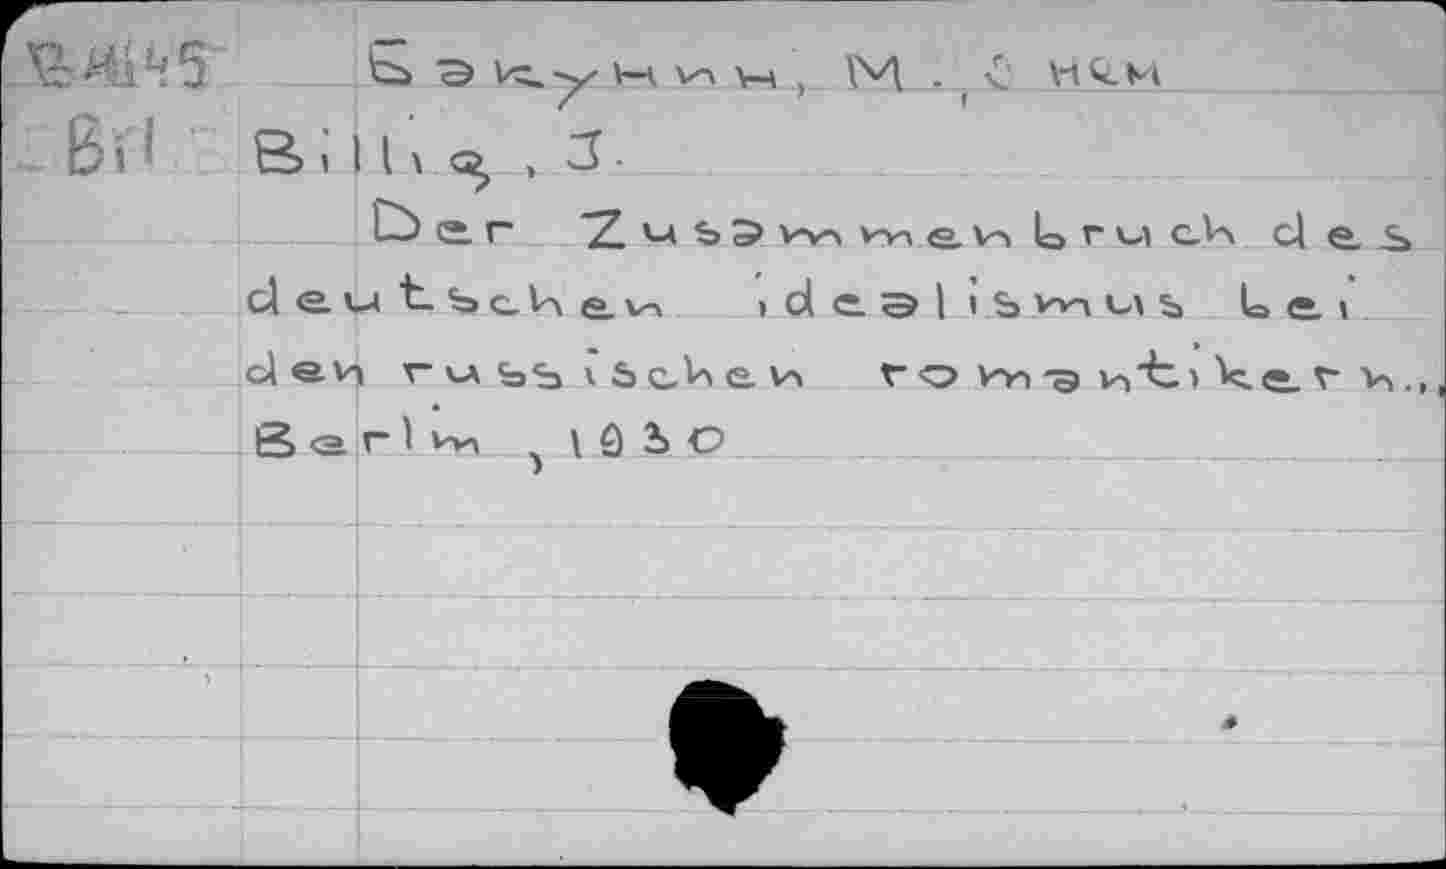 Бакунин, М., о нем
Bil
Billig, J.
Der Zusammenbruch des
deutschen idealismus bei
den russischen romantikern.,
Berlin, 1930